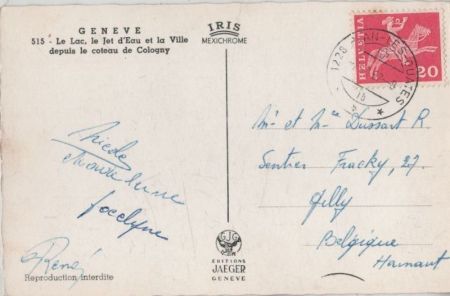 GENEVE
515 - Le Lac, le Jet d'Eau et la Ville
depuis le coteau de Cologny
IRIS
MEXICHROME
HELVETIA
20
1228 PLAN-LES-OUATES
Mr et Me Dussart R
Sentier Fracky, 27
Gilly
Belgique
Hainaut
Jocelyne
René
GJG
EDITIONS
JAEGER
GENEVE
Reproduction interdite